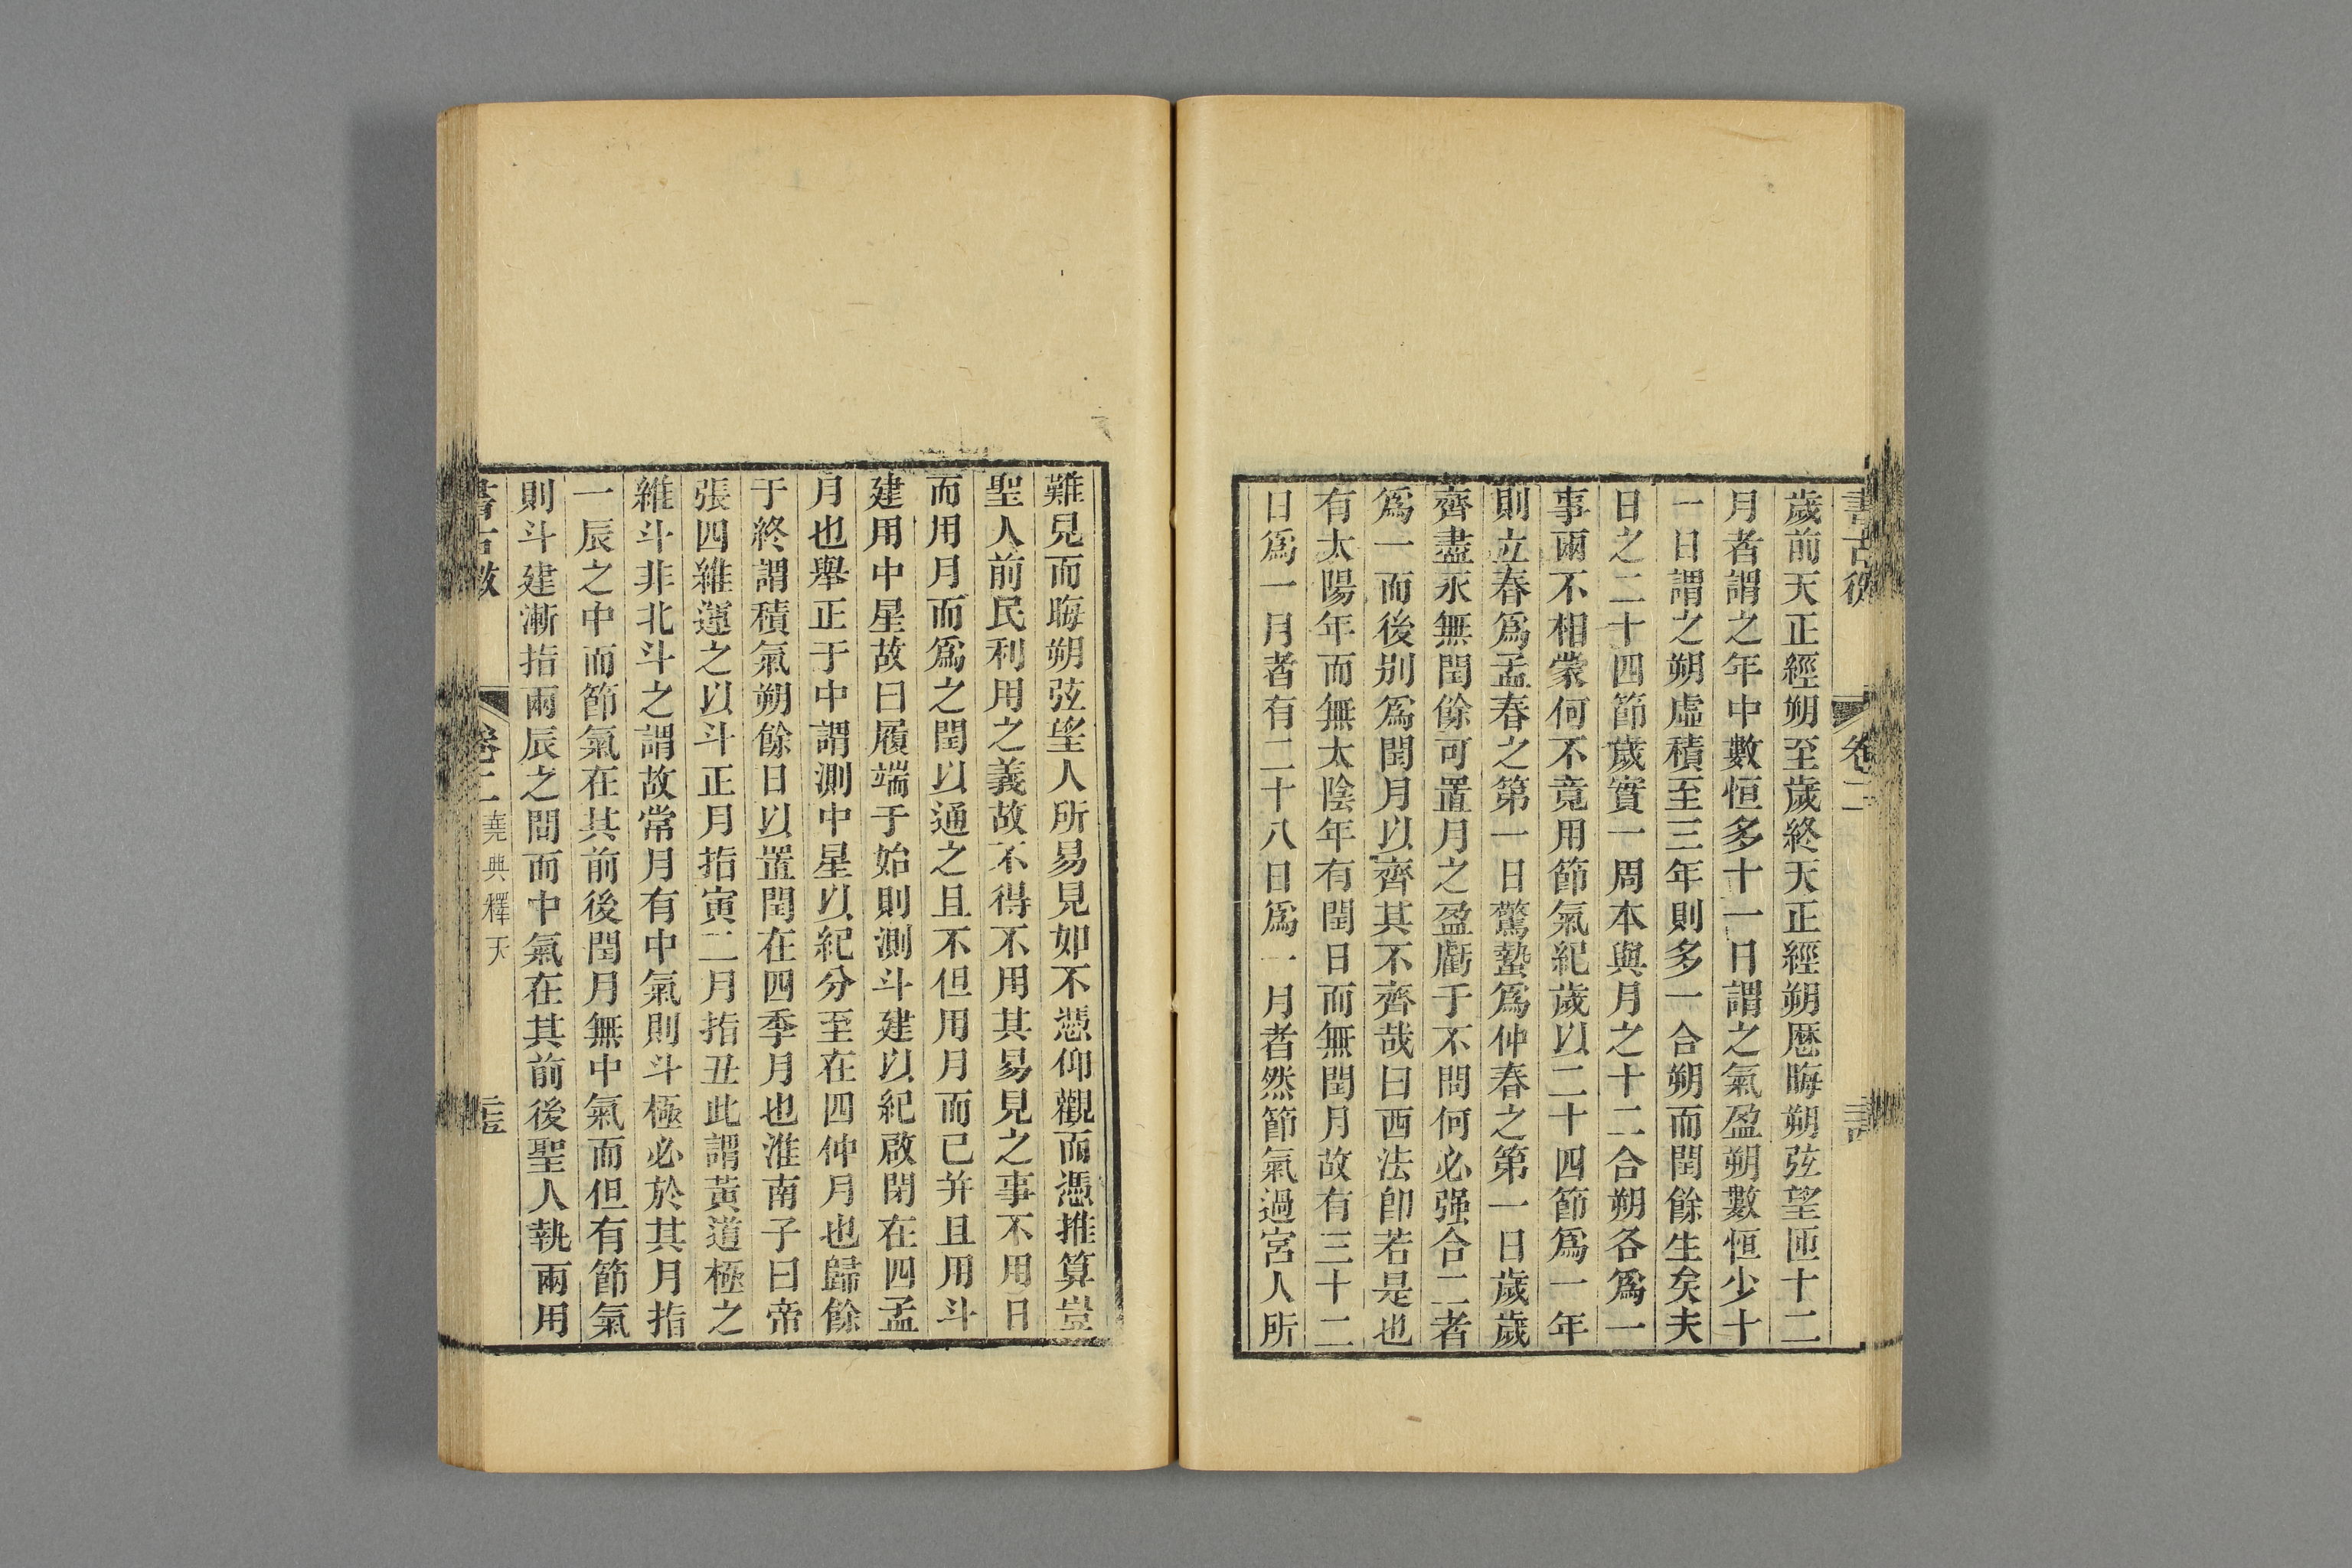 書古微
卷二
歲前天正經朔至歲終天正經朔厯晦朔弦望匝十二
月者謂之年中數恒多十一日謂之氣盈朔數恒少十
一日謂之朔虛積至三年則多一合朔而閏餘生矣夫
日之二十四節歲實一周本與月之十二合朔各爲一
事兩不相蒙何不竟用節氣紀歲以二十四節爲一年
則立春爲孟春之第一日驚蟄爲仲春之第一日歲歲
齊盡永無閏餘可置月之盈虧于不問何必强合二者
爲一而後别爲閏月以齊其不齊哉曰西法卽若是也
有太陽年而無太陰年有閏日而無閏月故有三十二
日爲一月者有二十八日爲一月者然節氣過宮人所
難見而晦朔弦望人所易見如不憑仰觀而憑推算豈
聖人前民利用之義故不得不用其易見之事不用日
而用月而爲之閏以通之且不但用月而已并且用斗
建用中星故曰履端于始則測斗建以紀啟閉在四孟
月也舉正于中謂測中星以紀分至在四仲月也歸餘
于終謂積氣朔餘日以置閏在四季月也淮南子曰帝
張四維運之以斗正月指寅二月指丑此謂黃道極之
維斗非北斗之謂故常月有中氣則斗極必於其月指
一辰之中而節氣在其前後閏月無中氣而但有節氣
則斗建漸指兩辰之間而中氣在其前後聖人執兩用
書古微
卷二堯典釋天